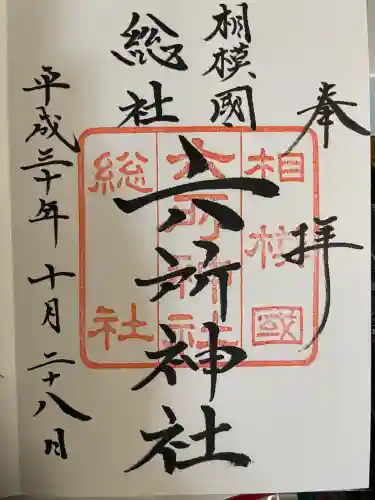 奉拝
相模國
総社
六所神社
平成三十年十月二十八日
相模國
六所神社
総社